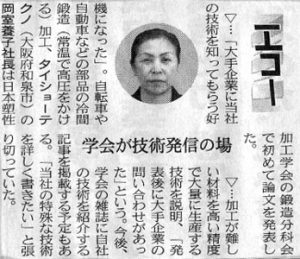 エコー
▽…「大手企業に当社
の技術を知ってもらう好
機になった」。自転車や
自動車などの部品の冷間
鍛造(常温で高圧をかけ
る)加工、タイショーテ
クノ(大阪府和泉市)の
岡室養子社長は日本塑性
加工学会の鍛造分科会
で初めて論文を発表し
た。
学会が技術発信の場
▽…加工が難し
い材料を高い精度
で大量に生産する
技術を説明、「発
表後に大手企業の
問い合わせがあっ
た」という。今後、
学会の雑誌に自社
の技術を紹介する
記事を掲載する予定もあ
る。「当社の特殊な技術
を詳しく書きたい」と張
り切っていた。